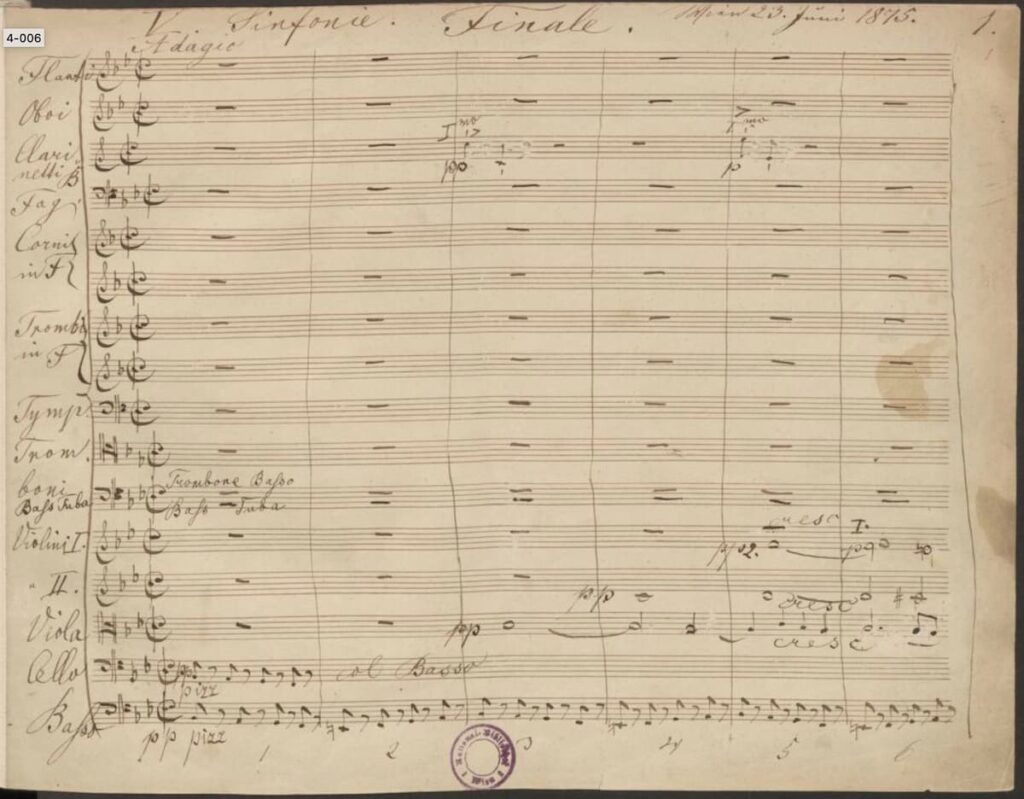 4-006
V Sinfonie. Finale. Wien 23. Juni 1875. 1.
Adagio
Flauti
Oboi
I mo I mo
Clari
netti B
pp p
Fag.
Corni
in F
Trombi
in F
Tymp.
Trom
boni
Trombone Basso
Bass Tuba
Bass Tuba
cresc
Violini I. pp 2. p I.
" II. pp cresc
Viola pp cresc
Cello p col Basso
pizz
Basso
pp pizz
1 2 3 4 5 6